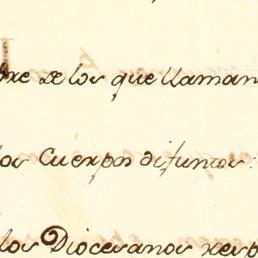 tre de los que llaman
los Cuerpos difuntos:
los Diocesanos resp